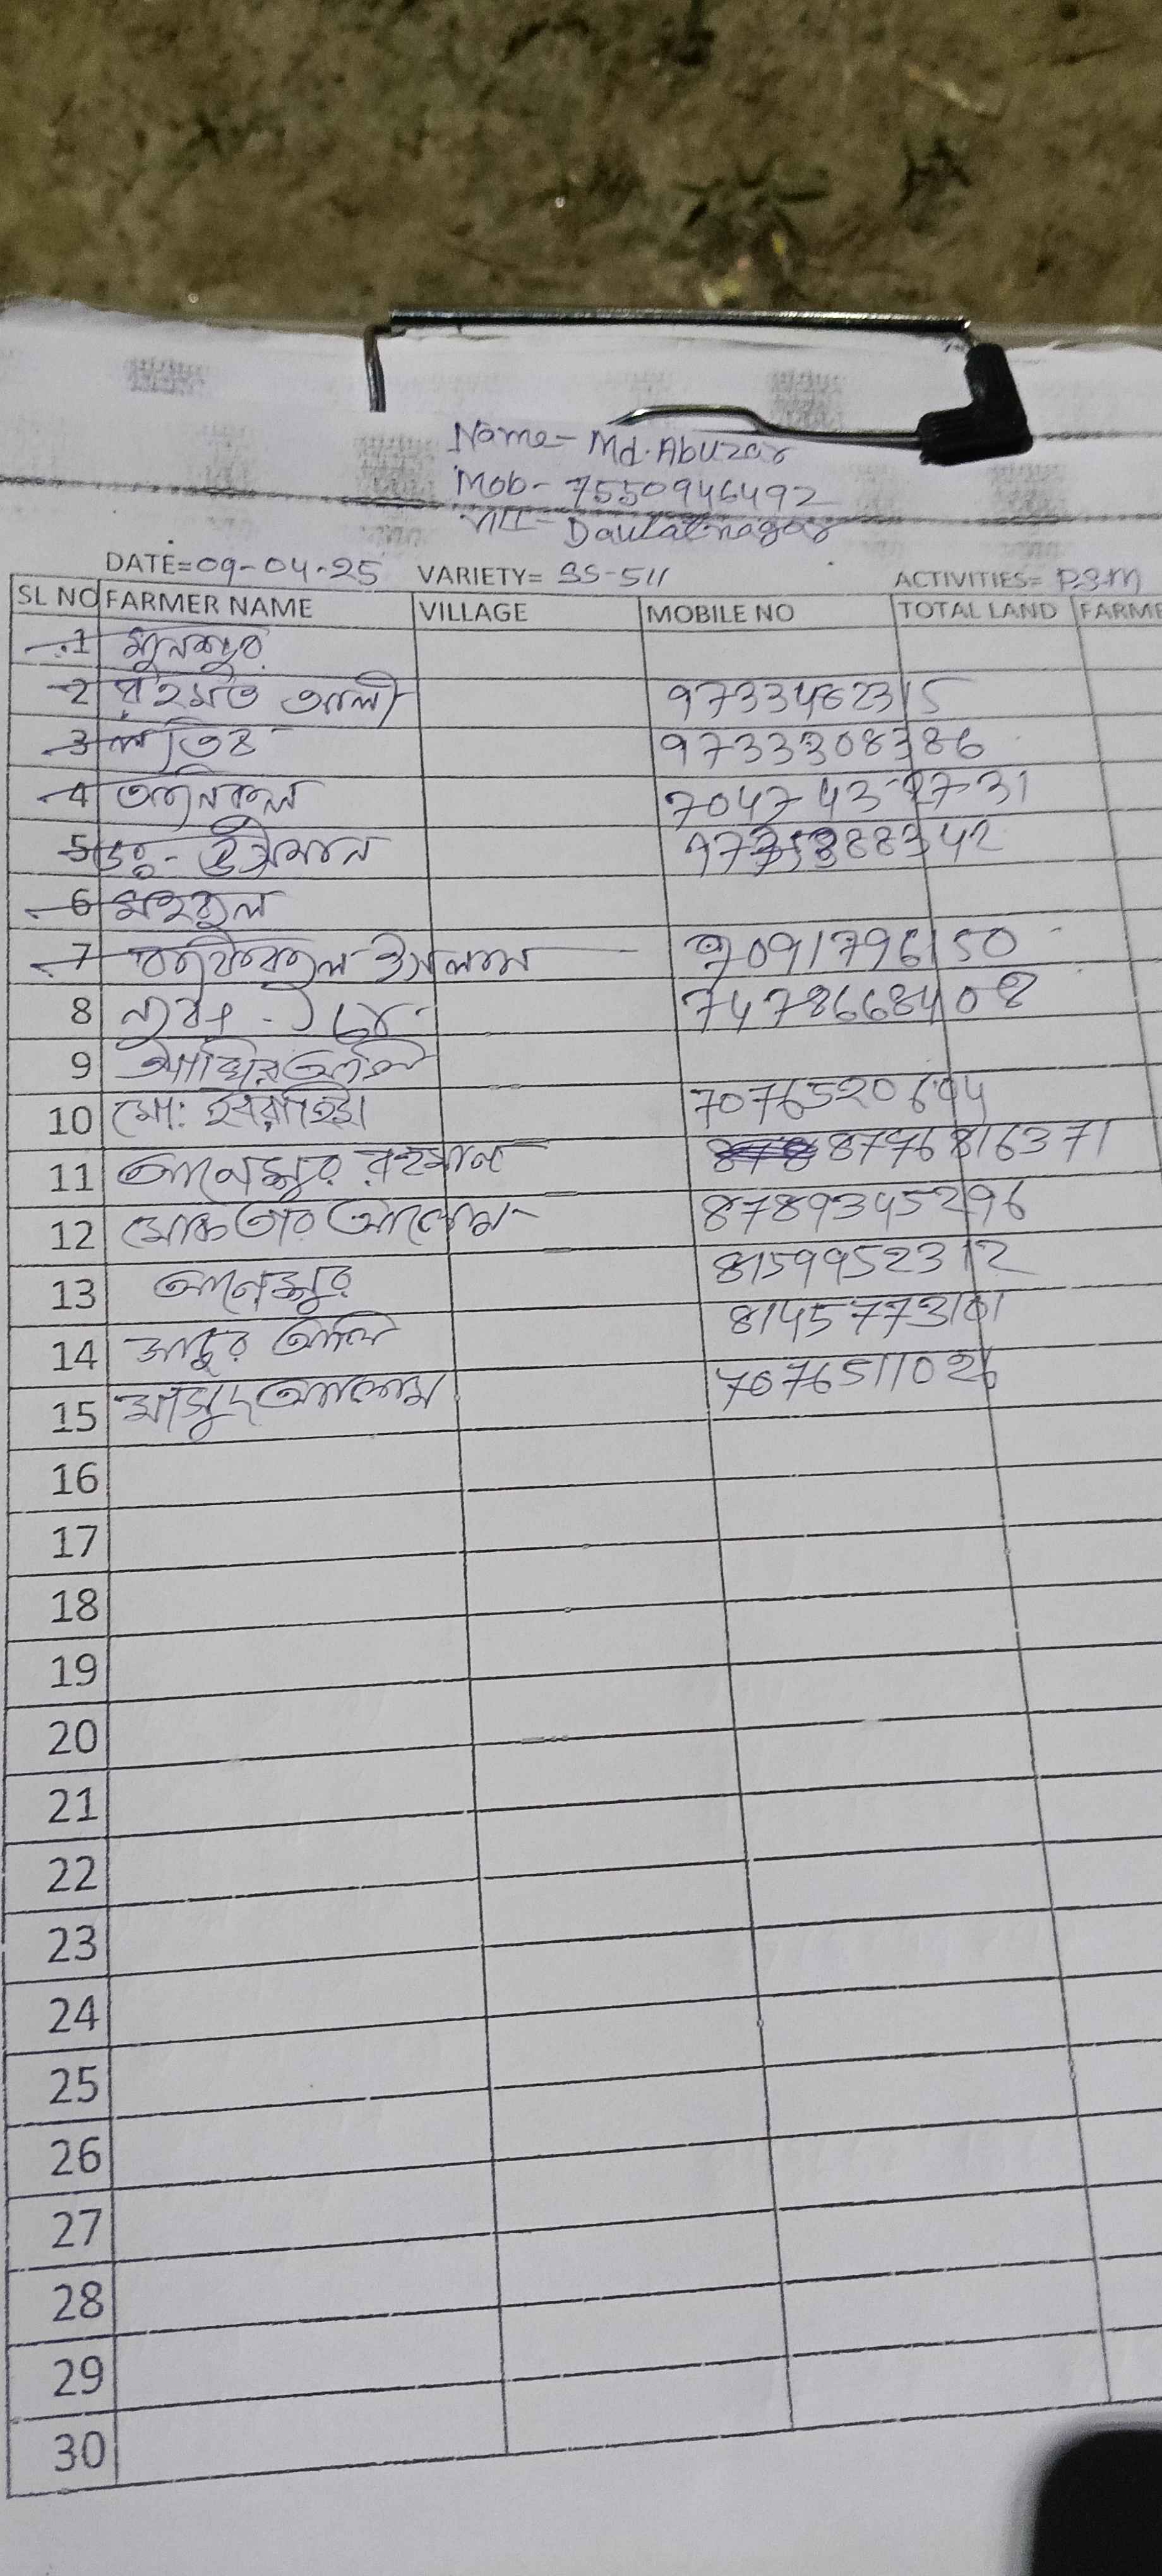 Name- Md. Abuzar
Mob- 7550946492
Vill- Daulatnagar
DATE=09-04-25 VARIETY= SS-511 ACTIVITIES= P.S.M
SL NO FARMER NAME VILLAGE MOBILE NO TOTAL LAND FARME
1 মুনসুর
2 রহমত আলী 9733462315
3 9733308386
4 704743
5 ডঃ- উসমান
6 মহবুল
7 রফিকুল ইসলাম 9091796150
8 7478668408
9
10 মো: ইব্রাহিম 7076520604
11 আনেসুর রহমান 8776816371
12 মোকতার আলোম 8789345296
13 আনেসুর 8159952312
14 আলি 8145773101
15 মাসুদ আলোম 7076511026
16
17
18
19
20
21
22
23
24
25
26
27
28
29
30